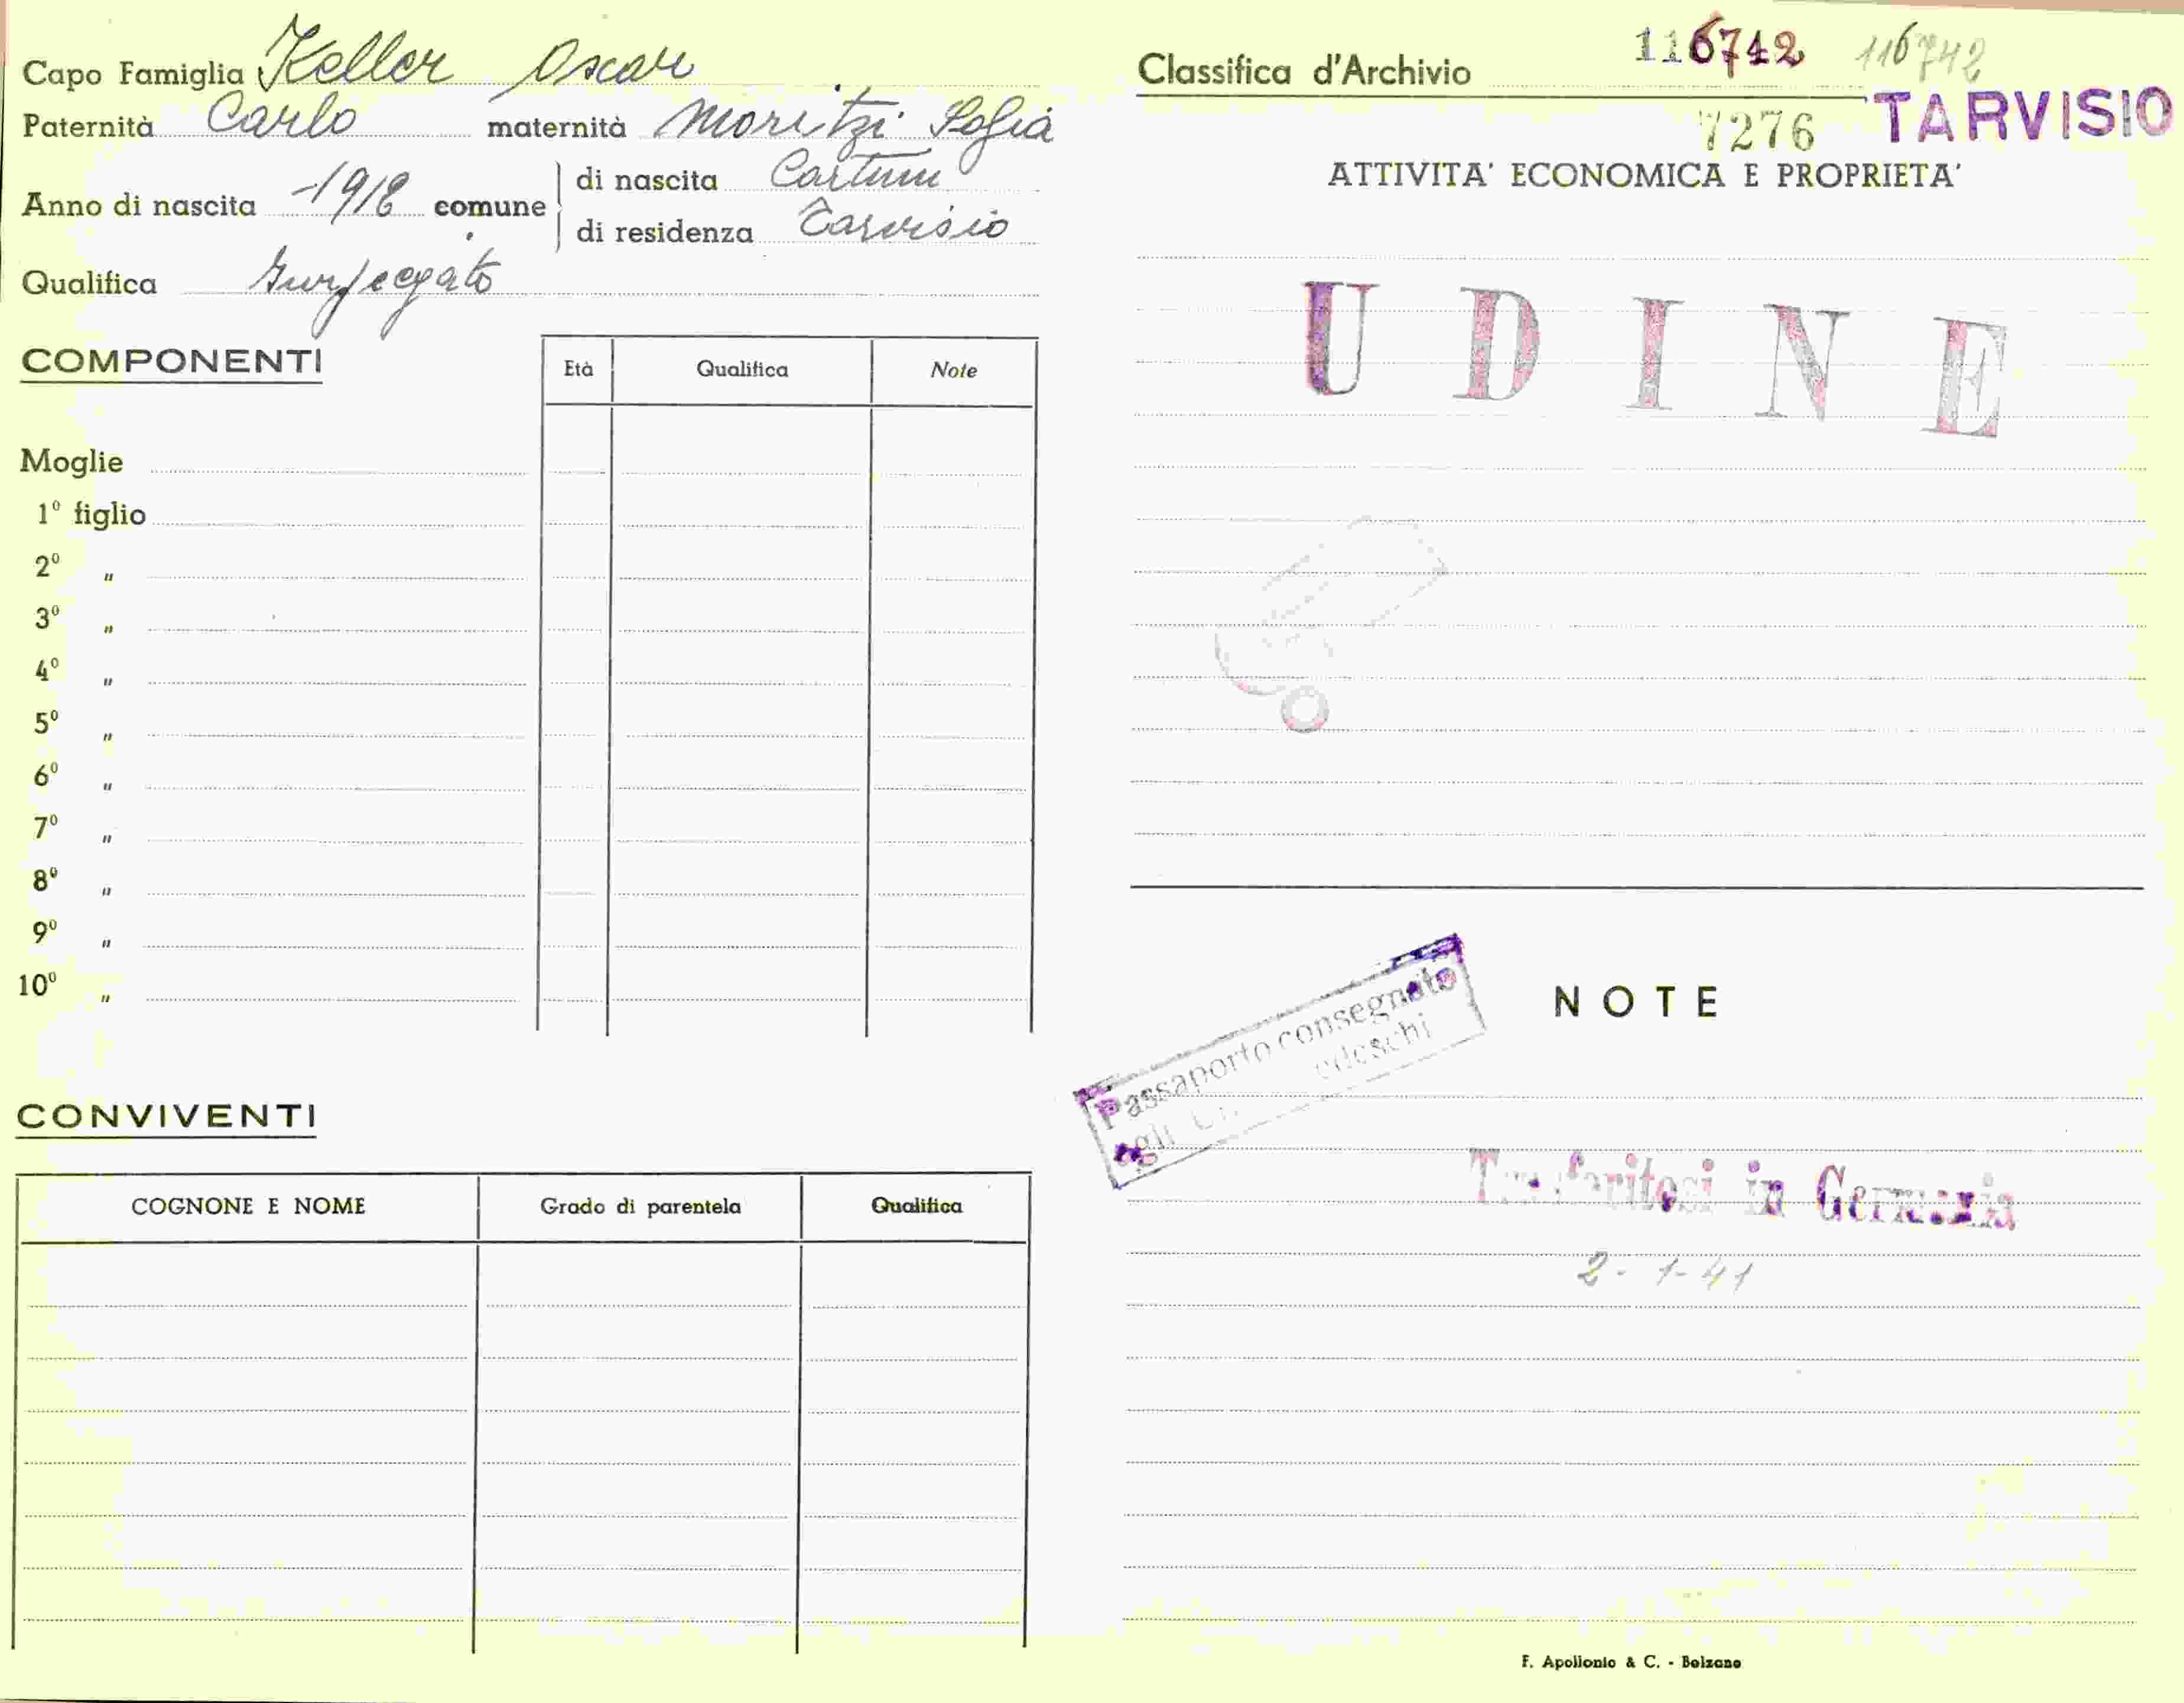 Capo Famiglia Keller Oscar
Paternità Carlo maternità Moritzi Sofia
Anno di nascita 1918 comune di nascita
di residenza Tarvisio
Qualifica
COMPONENTI
Età Qualifica Note
Moglie
1º figlio
2º "
3º "
4º "
5º "
6º "
7º "
8º "
9º "
10º "
CONVIVENTI
COGNONE E NOME Grado di parentela Qualifica
Classifica d'Archivio 116742 116742
7276 TARVISIO
ATTIVITA' ECONOMICA E PROPRIETA'
UDINE
NOTE
Passaporto consegnato
agli
Trasferitosi in Germania
2-1-41
F. Apollonio & C. - Bolzano